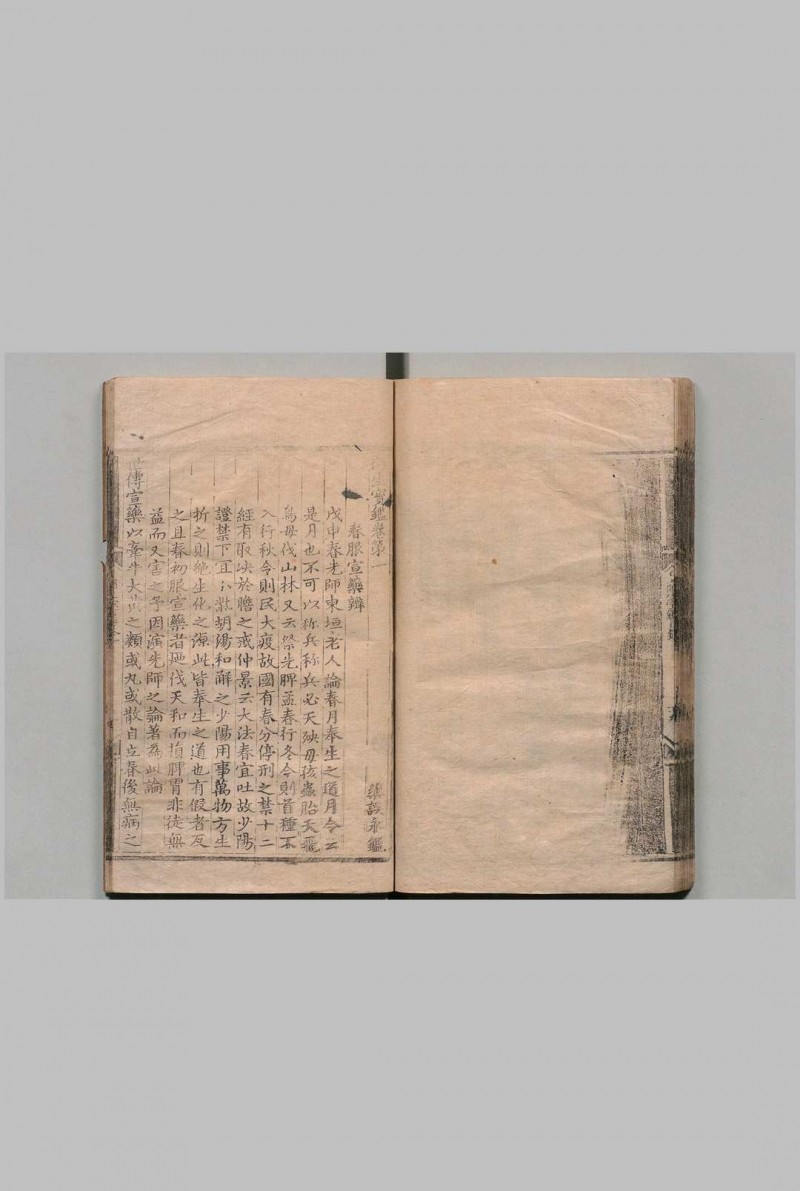 生寶鑑卷第一
藥誤永鑑
春服宣藥辨
戊申春先師東垣老人論春月奉生之道月令云
是月也不可以称兵称兵必天殃毋孩蟲胎夭飛
鳥毋伐山林又云祭先脾孟春行冬令則首種不
入行秋令則民大疫故國有春分停刑之禁十二
經有取决於膽之戒仲景云大法春宜吐故少陽
證禁下宜小柴胡湯和解之少陽用事萬物方生
折之則絶生化之源此皆奉生之道也有假者反
之且春初服宣藥者伐天和而損脾胃非徒無
益而又害之予因演先師之論著為此論
世傳宣藥以牽牛大黄之類或丸或散自立春後無病之